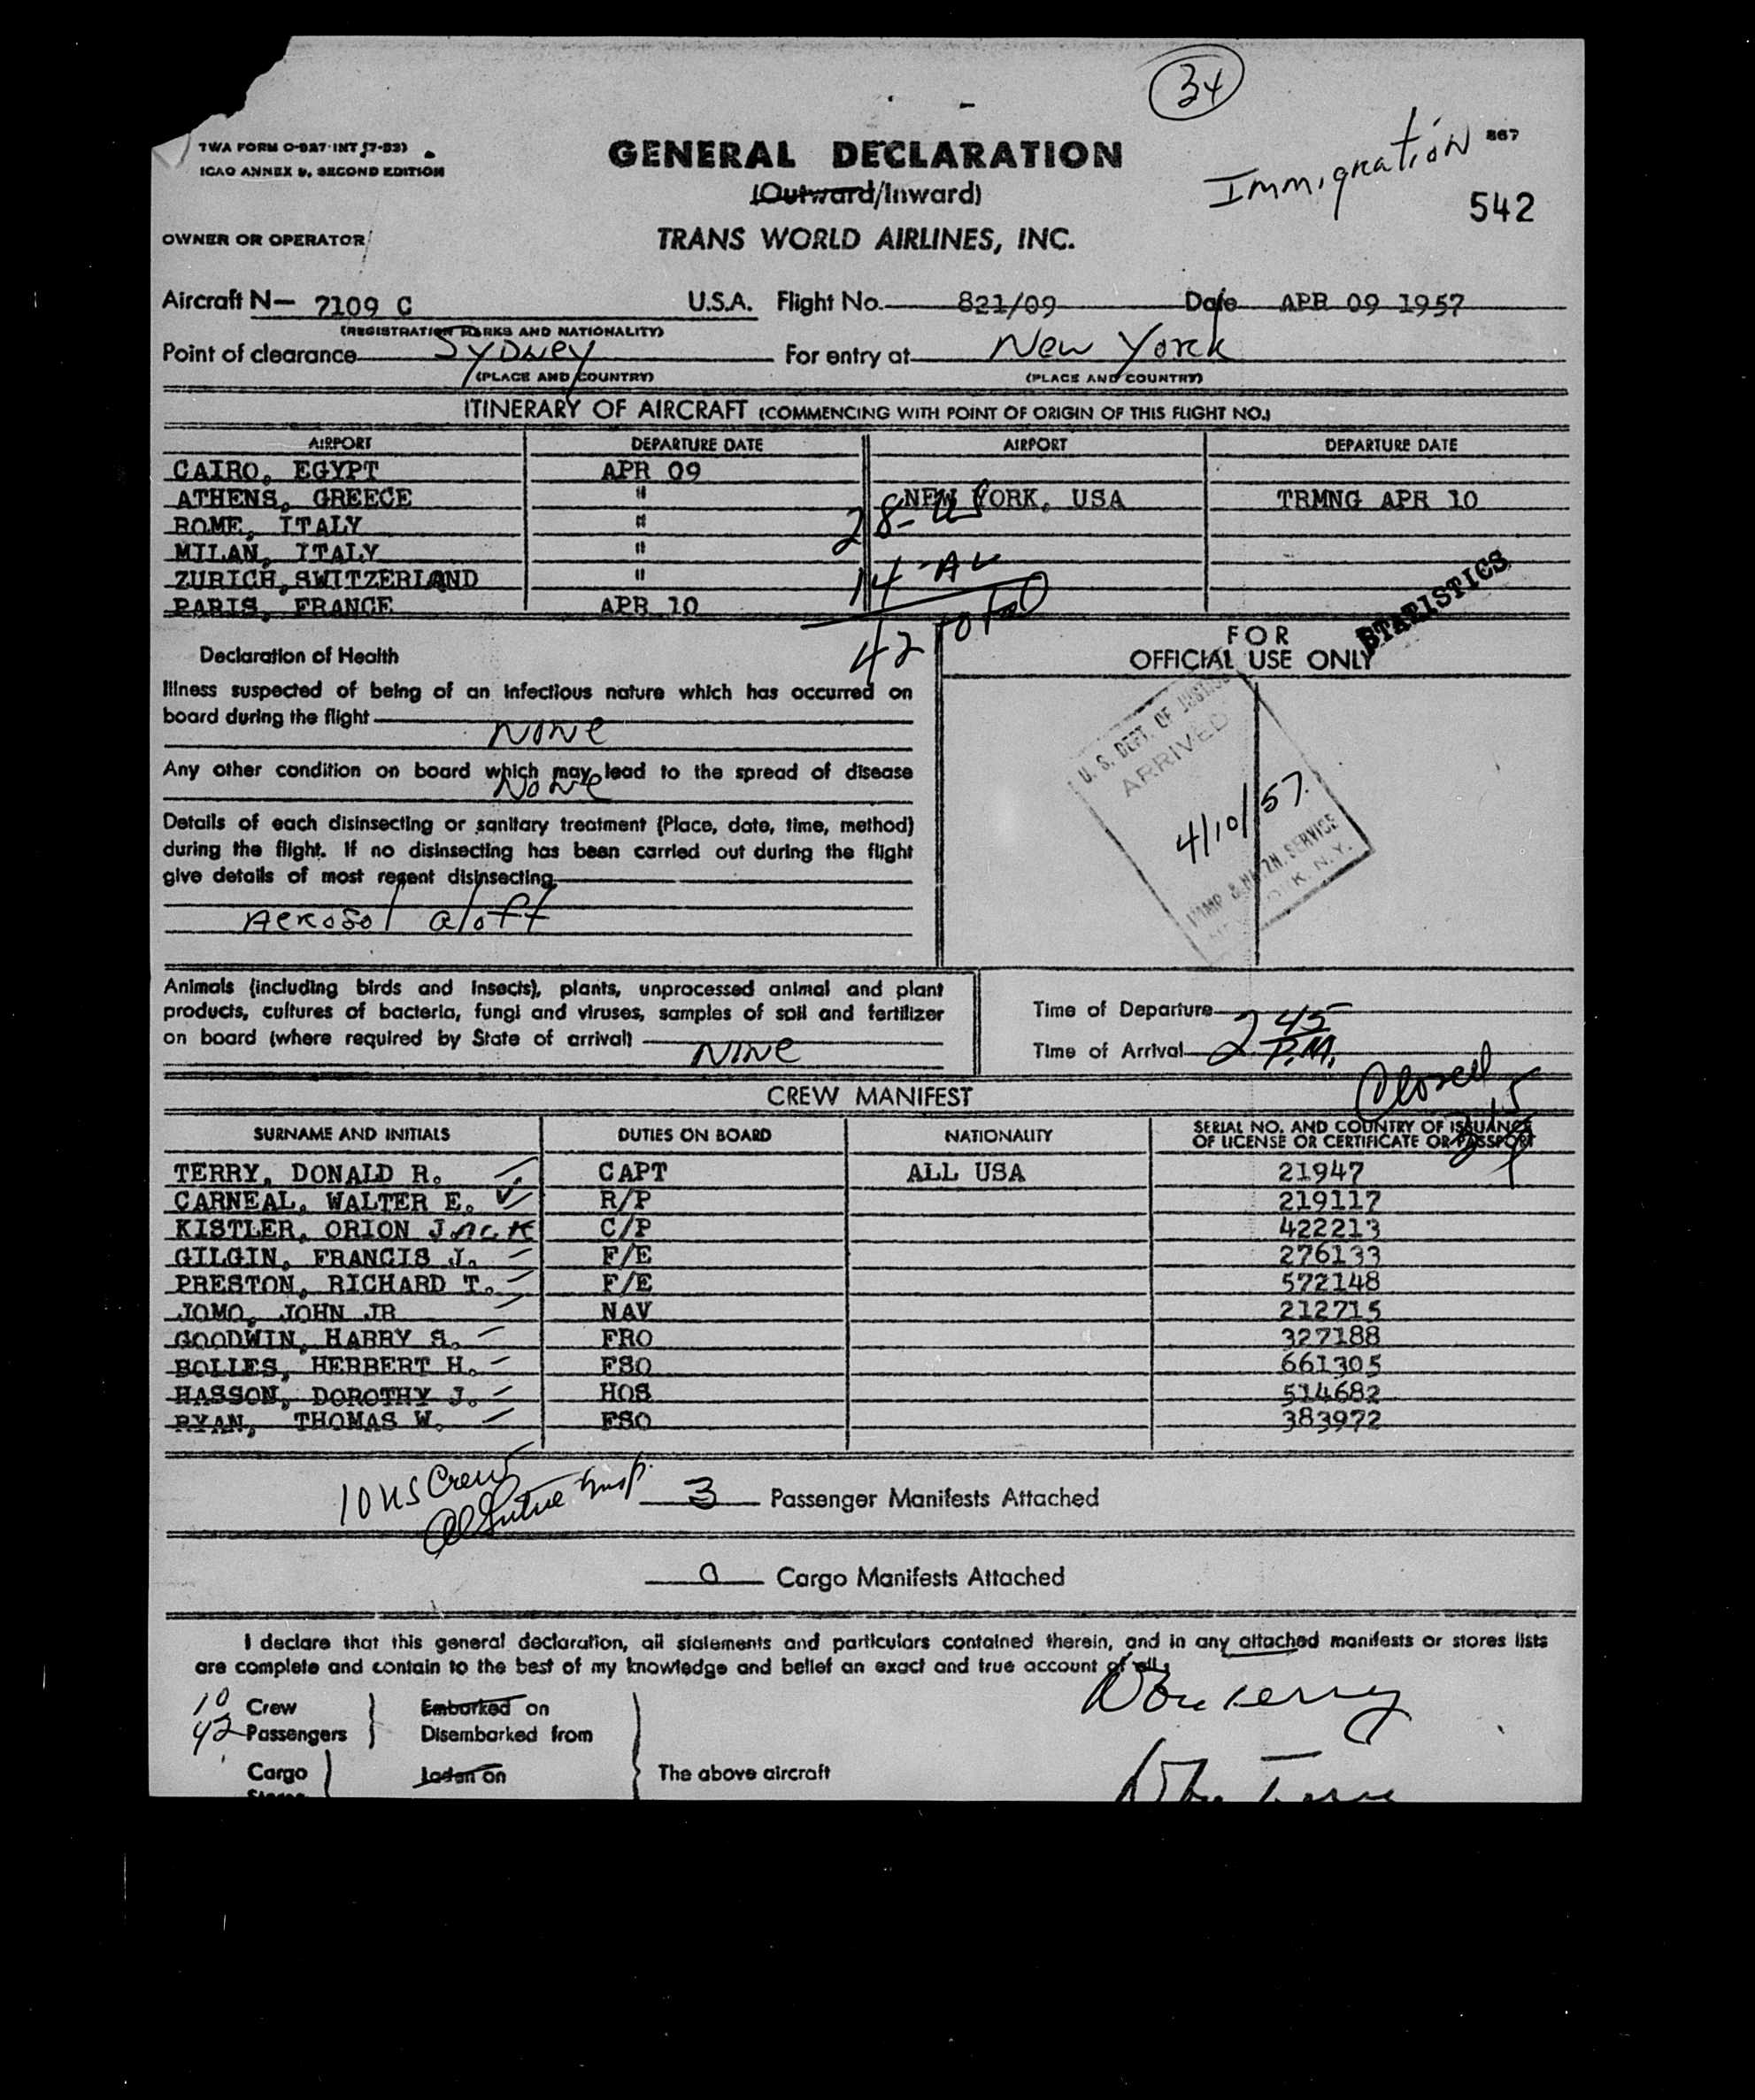 34
TWA FORM O-927-INT (7-53)
ICAO ANNEX 9, SECOND EDITION
GENERAL DECLARATION
(Outward/Inward)
Immigration
867
542
OWNER OR OPERATOR
TRANS WORLD AIRLINES, INC.
Aircraft N- 7109 C U.S.A. Flight No. 821/09 Date APR 09 1957
(REGISTRATION MARKS AND NATIONALITY)
Point of clearance Sydney For entry at New York
(PLACE AND COUNTRY) (PLACE AND COUNTRY)
ITINERARY OF AIRCRAFT (COMMENCING WITH POINT OF ORIGIN OF THIS FLIGHT NO.)
AIRPORT DEPARTURE DATE AIRPORT DEPARTURE DATE
CAIRO, EGYPT APR 09
ATHENS, GREECE " NEW YORK, USA TRMNG APR 10
ROME, ITALY "
28-US
MILAN, ITALY "
14-AL
ZURICH, SWITZERLAND "
PARIS, FRANCE APR 10
42 total
STATISTICS
FOR
OFFICIAL USE ONLY
Declaration of Health
Illness suspected of being of an infectious nature which has occurred on
board during the flight
None
Any other condition on board which may lead to the spread of disease
None
Details of each disinsecting or sanitary treatment (Place, date, time, method)
during the flight. If no disinsecting has been carried out during the flight
give details of most recent disinsecting
Aerosol aloft
U. S. DEPT. OF JUSTICE
ARRIVED
4/10/57
IMM. & NATZN. SERVICE
N.Y.
Animals (including birds and insects), plants, unprocessed animal and plant
products, cultures of bacteria, fungi and viruses, samples of soil and fertilizer
on board (where required by State of arrival) None
Time of Departure
Time of Arrival 2 45 P.M.
Closed
CREW MANIFEST
SURNAME AND INITIALS DUTIES ON BOARD NATIONALITY SERIAL NO. AND COUNTRY OF ISSUANCE
OF LICENSE OR CERTIFICATE OR PASSPORT
TERRY, DONALD R. CAPT ALL USA 21947
CARNEAL, WALTER E. R/P 219117
KISTLER, ORION JACK C/P 422213
GILGIN, FRANCIS J. F/E 276133
PRESTON, RICHARD T. F/E 572148
JOMO, JOHN JR NAV 212715
GOODWIN, HARRY S. FRO 327188
BOLLES, HERBERT H. FSO 661305
HASSON, DOROTHY J. HOS 514682
RYAN, THOMAS W. FSO 383972
10 US Crew
3 Passenger Manifests Attached
0 Cargo Manifests Attached
I declare that this general declaration, all statements and particulars contained therein, and in any attached manifests or stores lists
are complete and contain to the best of my knowledge and belief an exact and true account of all
Don Terry
10 Crew Embarked on
42 Passengers Disembarked from
Cargo Laden on The above aircraft
Stores
Don Terry